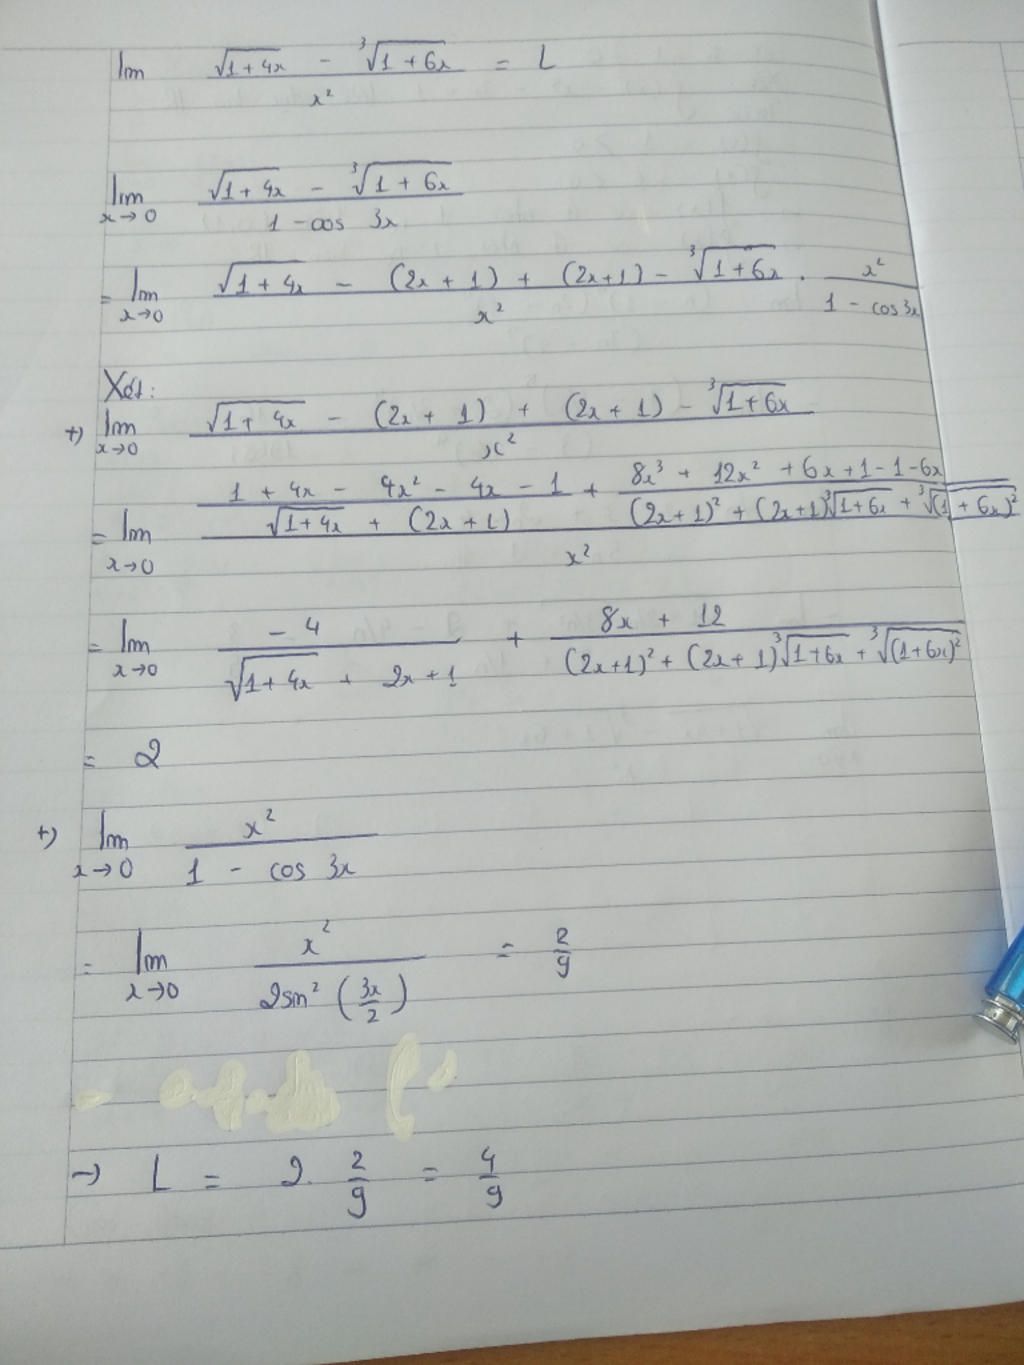 lim (√(1+4x) - ∛(1+6x))/x² = L
lim x→0 (√(1+4x) - ∛(1+6x))/(1 - cos 3x)
= lim x→0 (√(1+4x) - (2x+1) + (2x+1) - ∛(1+6x))/x² . x²/(1 - cos 3x)
Xét:
+) lim x→0 (√(1+4x) - (2x+1) + (2x+1) - ∛(1+6x))/x²
= lim x→0 ((1 + 4x - 4x² - 4x - 1)/(√(1+4x) + (2x+1)) + (8x³ + 12x² + 6x + 1 - 1 - 6x)/((2x+1)² + (2x+1)∛(1+6x) + ∛(1+6x)²))/x²
= lim x→0 -4/(√(1+4x) + 2x+1) + (8x + 12)/((2x+1)² + (2x+1)∛(1+6x) + ∛((1+6x)²))
= 2
+) lim x→0 x²/(1 - cos 3x)
= lim x→0 x²/(2sin²(3x/2)) = 2/9
→ L = 2. 2/9 = 4/9